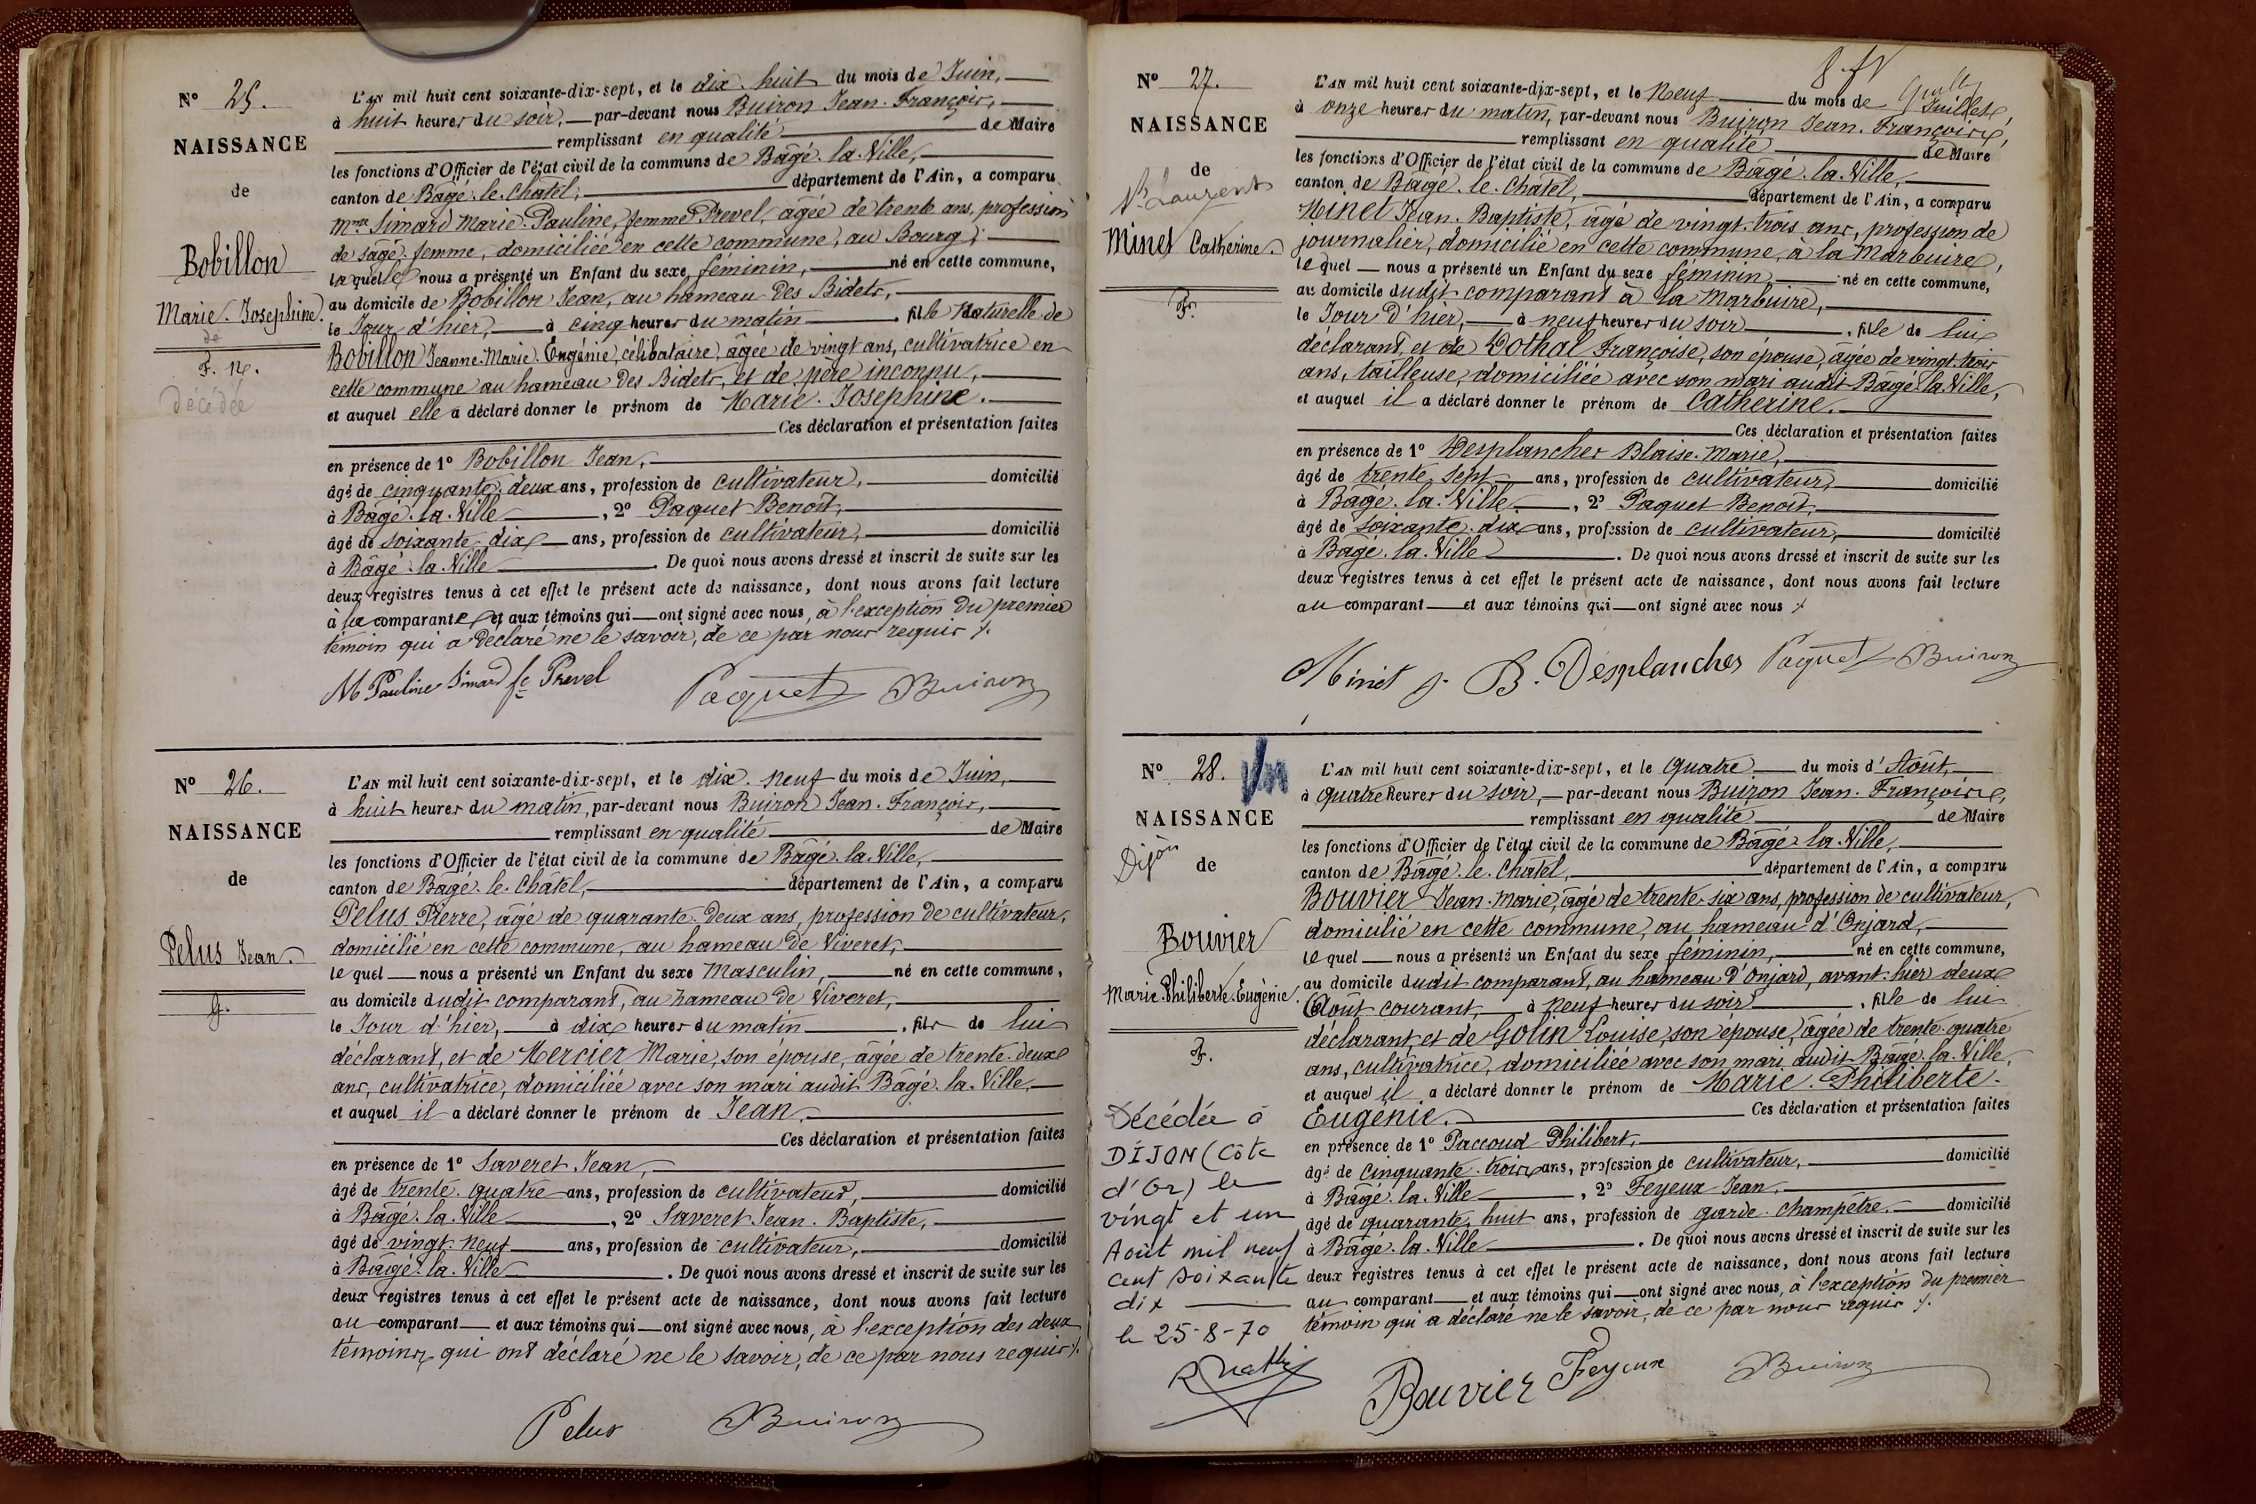 N° 25.
NAISSANCE
de
Bobillon
Marie-Josephine.
de
F. N.
Décédée
L'AN mil huit cent soixante-dix-sept, et le dix-huit du mois de Juin,
à huit heures du soir, par-devant nous Buiron Jean-François,
remplissant en qualité de Maire
les fonctions d'Officier de l'état civil de la commune de Bâgé-la-Ville,
canton de Bâgé-le-Châtel, département de l'Ain, a comparu
Mme Simard Marie-Pauline, femme Prevel, âgée de trente ans, profession
de sage-femme, domiciliée en cette commune, au Bourg,
laquelle nous a présenté un Enfant du sexe féminin, né en cette commune,
au domicile de Bobillon Jean, au hameau des Bidets,
le Jour d'hier, à cinq heures du matin, fille Naturelle de
Bobillon Jeanne-Marie-Eugénie, célibataire, âgée de vingt ans, cultivatrice en
cette commune au hameau des Bidets, et de père inconnu,
et auquel elle a déclaré donner le prénom de Marie-Josephine.
Ces déclaration et présentation faites
en présence de 1° Bobillon Jean,
âgé de cinquante-deux ans, profession de cultivateur, domicilié
à Bâgé-la-Ville, 2° Paquet Benoît,
âgé de soixante-dix ans, profession de cultivateur, domicilié
à Bâgé-la-Ville. De quoi nous avons dressé et inscrit de suite sur les
deux registres tenus à cet effet le présent acte de naissance, dont nous avons fait lecture
à la comparante et aux témoins qui ont signé avec nous, à l'exception du premier
témoin qui a déclaré ne le savoir, de ce par nous requis /.
M Pauline Simard fe Prevel Paquet Buiron
N° 26.
NAISSANCE
de
Pelus Jean.
G.
L'AN mil huit cent soixante-dix-sept, et le dix-neuf du mois de Juin,
à huit heures du matin, par-devant nous Buiron Jean-François,
remplissant en qualité de Maire
les fonctions d'Officier de l'état civil de la commune de Bâgé-la-Ville,
canton de Bâgé-le-Châtel, département de l'Ain, a comparu
Pelus Pierre, âgé de quarante-deux ans, profession de cultivateur,
domicilié en cette commune, au hameau de Viveret,
lequel nous a présenté un Enfant du sexe Masculin, né en cette commune,
au domicile dudit comparant, au hameau de Viveret,
le Jour d'hier, à dix heures du matin, fils de lui
déclarant, et de Mercier Marie, son épouse, âgée de trente-deux
ans, cultivatrice, domiciliée avec son mari audit Bâgé-la-Ville,
et auquel il a déclaré donner le prénom de Jean.
Ces déclaration et présentation faites
en présence de 1° Saveret Jean,
âgé de trente-quatre ans, profession de cultivateur, domicilié
à Bâgé-la-Ville, 2° Saveret Jean-Baptiste,
âgé de vingt-neuf ans, profession de cultivateur, domicilié
à Bâgé-la-Ville. De quoi nous avons dressé et inscrit de suite sur les
deux registres tenus à cet effet le présent acte de naissance, dont nous avons fait lecture
au comparant et aux témoins qui ont signé avec nous, à l'exception des deux
témoins qui ont déclaré ne le savoir, de ce par nous requis /.
Pelus Buiron
N° 27.
NAISSANCE
de
St Laurent
Minet Catherine.
F.
L'AN mil huit cent soixante-dix-sept, et le Neuf du mois de Juillet,
à onze heures du matin, par-devant nous Buiron Jean-François,
remplissant en qualité de Maire
les fonctions d'Officier de l'état civil de la commune de Bâgé-la-Ville,
canton de Bâgé-le-Châtel, département de l'Ain, a comparu
Minet Jean-Baptiste, âgé de vingt-trois ans, profession de
journalier, domicilié en cette commune, à la Marbuire,
lequel nous a présenté un Enfant du sexe féminin né en cette commune,
au domicile dudit comparant à la Marbuire,
le Jour d'hier, à neuf heures du soir, fille de lui
déclarant, et de Dothal Françoise, son épouse, âgée de vingt-trois
ans, tailleuse, domiciliée avec son mari audit Bâgé-la-Ville,
et auquel il a déclaré donner le prénom de Catherine.
Ces déclaration et présentation faites
en présence de 1° Desplanches Blaise-Marie,
âgé de trente-sept ans, profession de cultivateur, domicilié
à Bâgé-la-Ville, 2° Paquet Benoît,
âgé de soixante-dix ans, profession de cultivateur, domicilié
à Bâgé-la-Ville. De quoi nous avons dressé et inscrit de suite sur les
deux registres tenus à cet effet le présent acte de naissance, dont nous avons fait lecture
au comparant et aux témoins qui ont signé avec nous /.
Minet J. B. Desplanches Paquet Buiron
N° 28.
NAISSANCE
Dijon
de
Bouvier
Marie-Philiberte-Eugénie.
F.
Décédée à
DIJON (Côte
d'Or) le
vingt et un
Août mil neuf
cent soixante
dix
le 25-8-70
L'AN mil huit cent soixante-dix-sept, et le Quatre du mois d'Août,
à quatre heures du soir, par-devant nous Buiron Jean-François,
remplissant en qualité de Maire
les fonctions d'Officier de l'état civil de la commune de Bâgé-la-Ville,
canton de Bâgé-le-Châtel, département de l'Ain, a comparu
Bouvier Jean-Marie, âgé de trente-six ans, profession de cultivateur,
domicilié en cette commune, au hameau d'Onjard,
lequel nous a présenté un Enfant du sexe féminin, né en cette commune,
au domicile dudit comparant, au hameau d'Onjard, avant-hier deux
Août courant, à neuf heures du soir, fille de lui
déclarant et de Golin Louise, son épouse, âgée de trente-quatre
ans, cultivatrice, domiciliée avec son mari audit Bâgé-la-Ville,
et auquel il a déclaré donner le prénom de Marie-Philiberte-
Eugénie. Ces déclaration et présentation faites
en présence de 1° Paccoud Philibert,
âgé de cinquante-trois ans, profession de cultivateur, domicilié
à Bâgé-la-Ville, 2° Feyeux Jean,
âgé de quarante-huit ans, profession de garde-champêtre, domicilié
à Bâgé-la-Ville. De quoi nous avons dressé et inscrit de suite sur les
deux registres tenus à cet effet le présent acte de naissance, dont nous avons fait lecture
au comparant et aux témoins qui ont signé avec nous, à l'exception du premier
témoin qui a déclaré ne le savoir, de ce par nous requis /.
Bouvier Feyeux Buiron